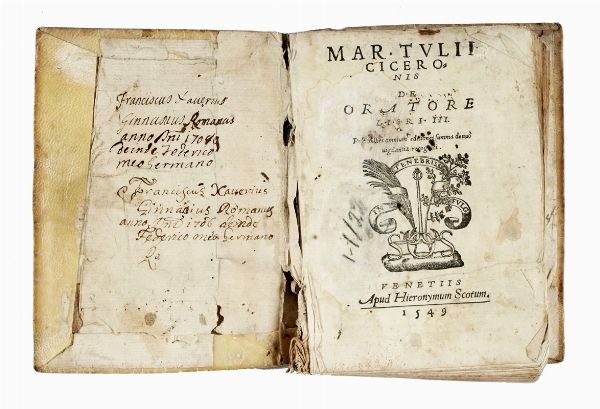 Franciscus Xaverius
Ginnasius Romanus
anno Dni 1708
deinde Foderico
meo hermano
Franciscus Xaverius
Ginnasius Romanus
anno Dni 1706 deinde
Federico meo hermano
MAR. TVLII
CICERO-
NIS
DE
ORATORE
LIBRI III.
Post omnium editiones summa denuo
vigilantia
TENEBRIS
VENETIIS
Apud Hieronymum Scotum.
1549